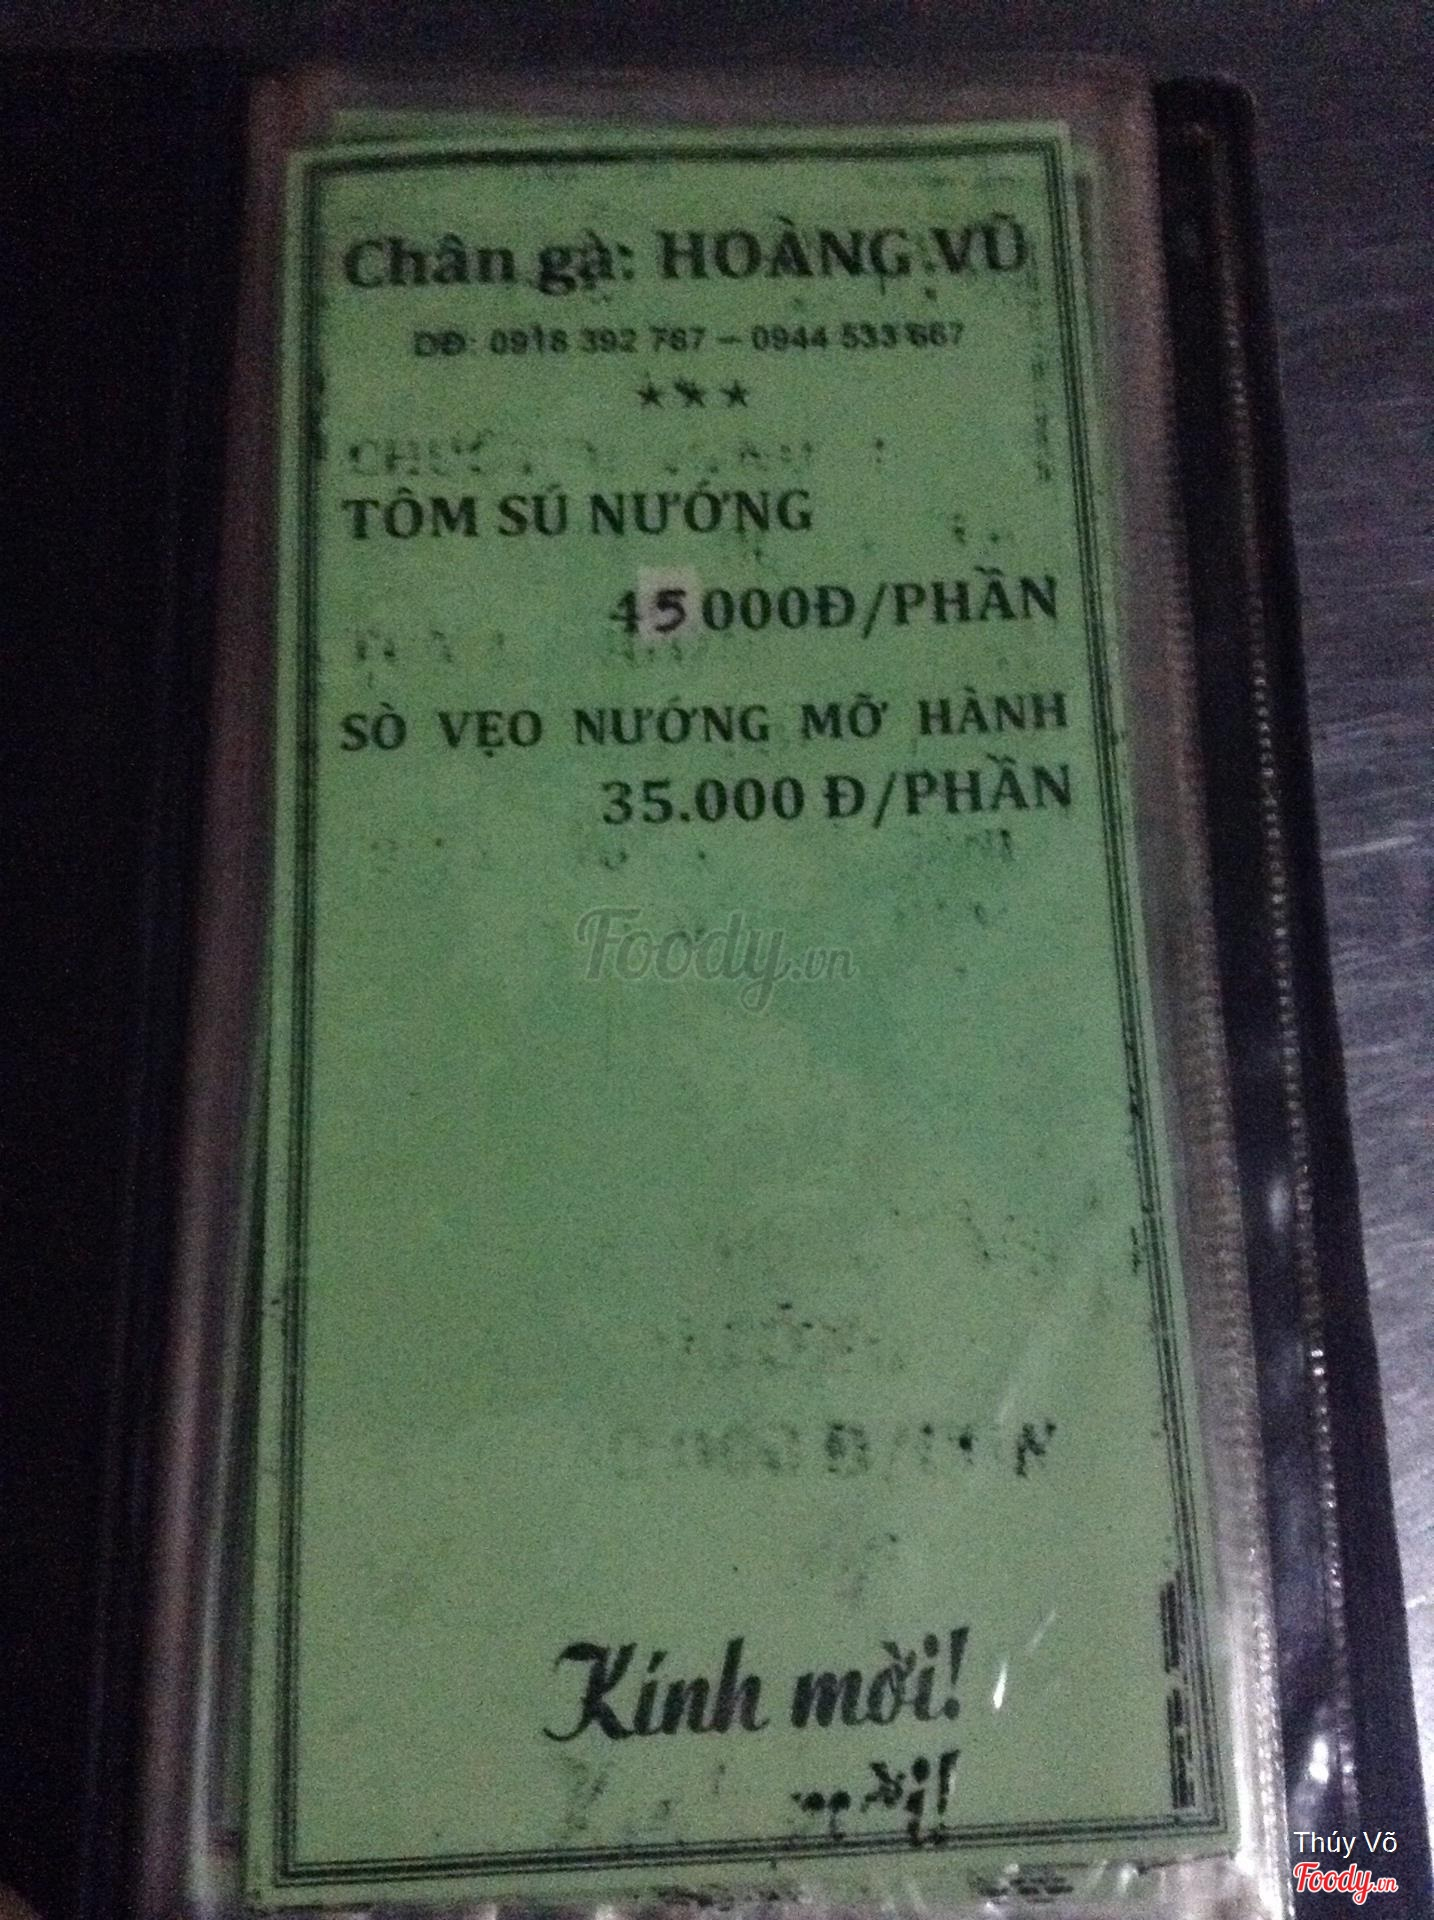 Chân gà: HOÀNG VŨ
DĐ: 0918 392 767 – 0944 533 667
TÔM SÚ NƯỚNG
45000Đ/PHẦN
SÒ VẸO NƯỚNG MỠ HÀNH
35.000 Đ/PHẦN
Foody.vn
Kính mời!
Thúy Võ
Foody.vn